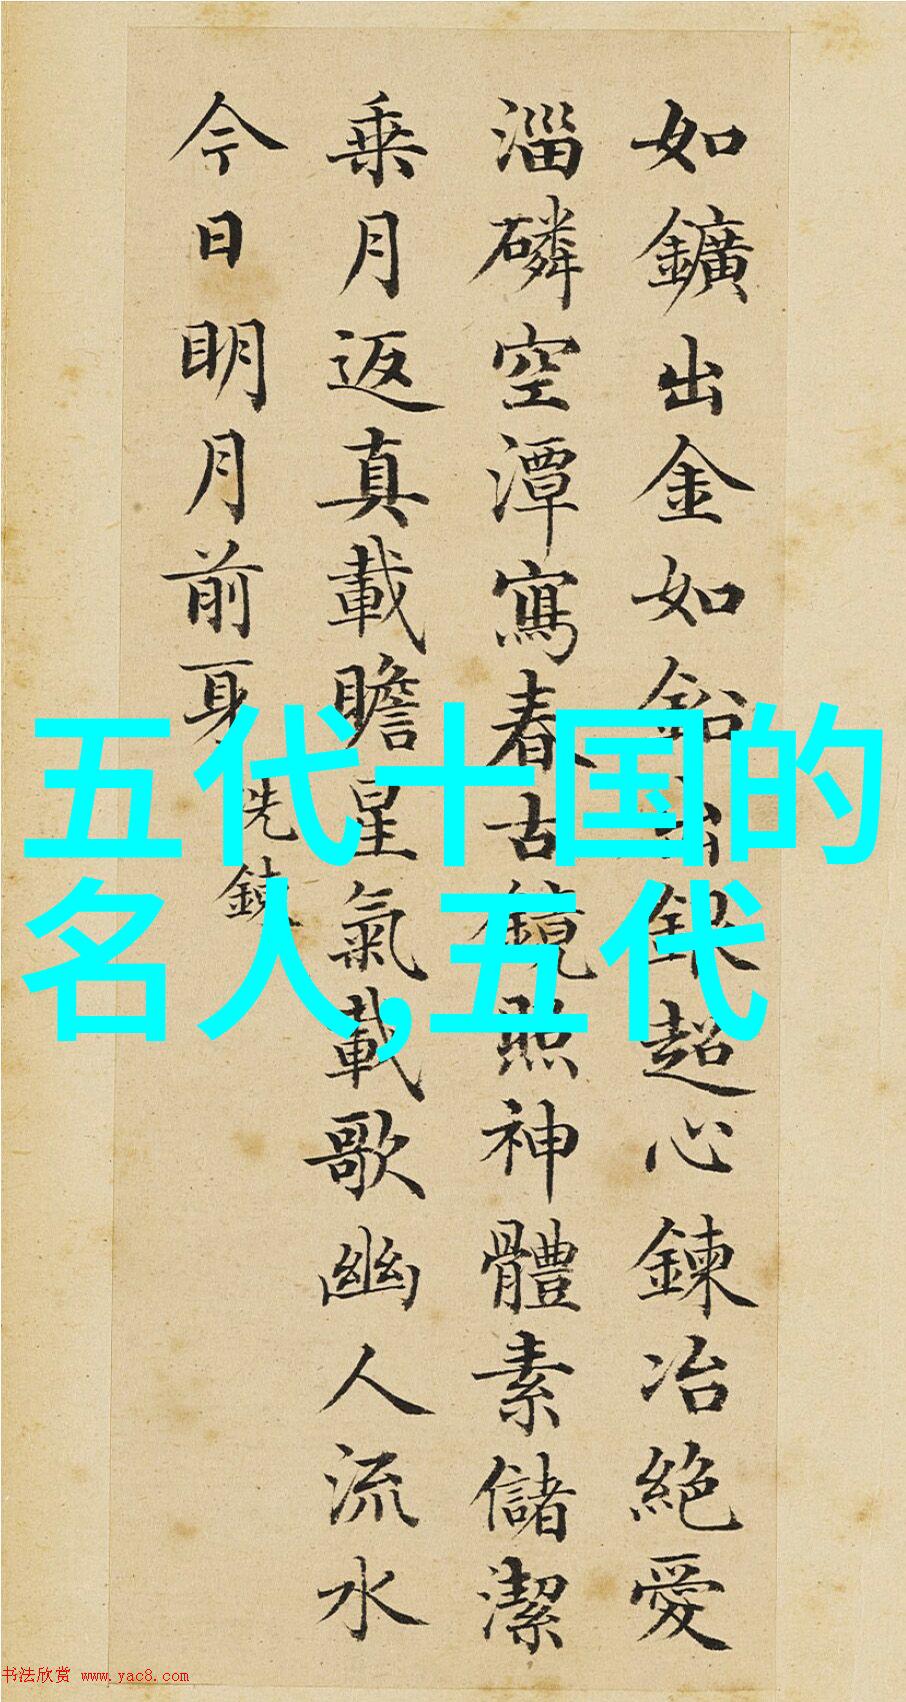 如鑛出金如鉛出銀超心鍊冶絕愛
淄磷空潭寫春古鏡照神體素儲潔
乗月返真載瞻星氣載歌幽人流水
今日明月前身
洗鍊
五代十国的
名人,五代
书法欣赏 www.yac8.com